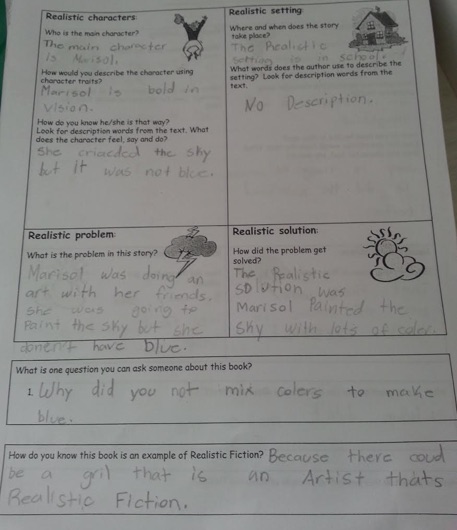 Realistic characters:
Who is the main character?
The main character
is Marisol.
How would you describe the character using
character traits?
Marisol is bold in
vision.
How do you know he/she is that way?
Look for description words from the text. What
does the character feel, say and do?
She criacded the sky
but it was not blue.
Realistic setting:
Where and when does the story
take place?
The Realictic
setting is in school.
What words does the author use to describe the
setting? Look for description words from the
text.
No Description.
Realistic problem:
What is the problem in this story?
Marisol was doing an
art with her friends.
She was going to
Paint the sky but she
donen't have blue.
Realistic solution:
How did the problem get
solved?
The Realistic
solution was
Marisol Painted the
sky with lots of coler.
What is one question you can ask someone about this book?
1. Why did you not mix colers to make
blue.
How do you know this book is an example of Realistic Fiction? Because there coud
be a gril that is an Artist thats
Realistic Fiction.